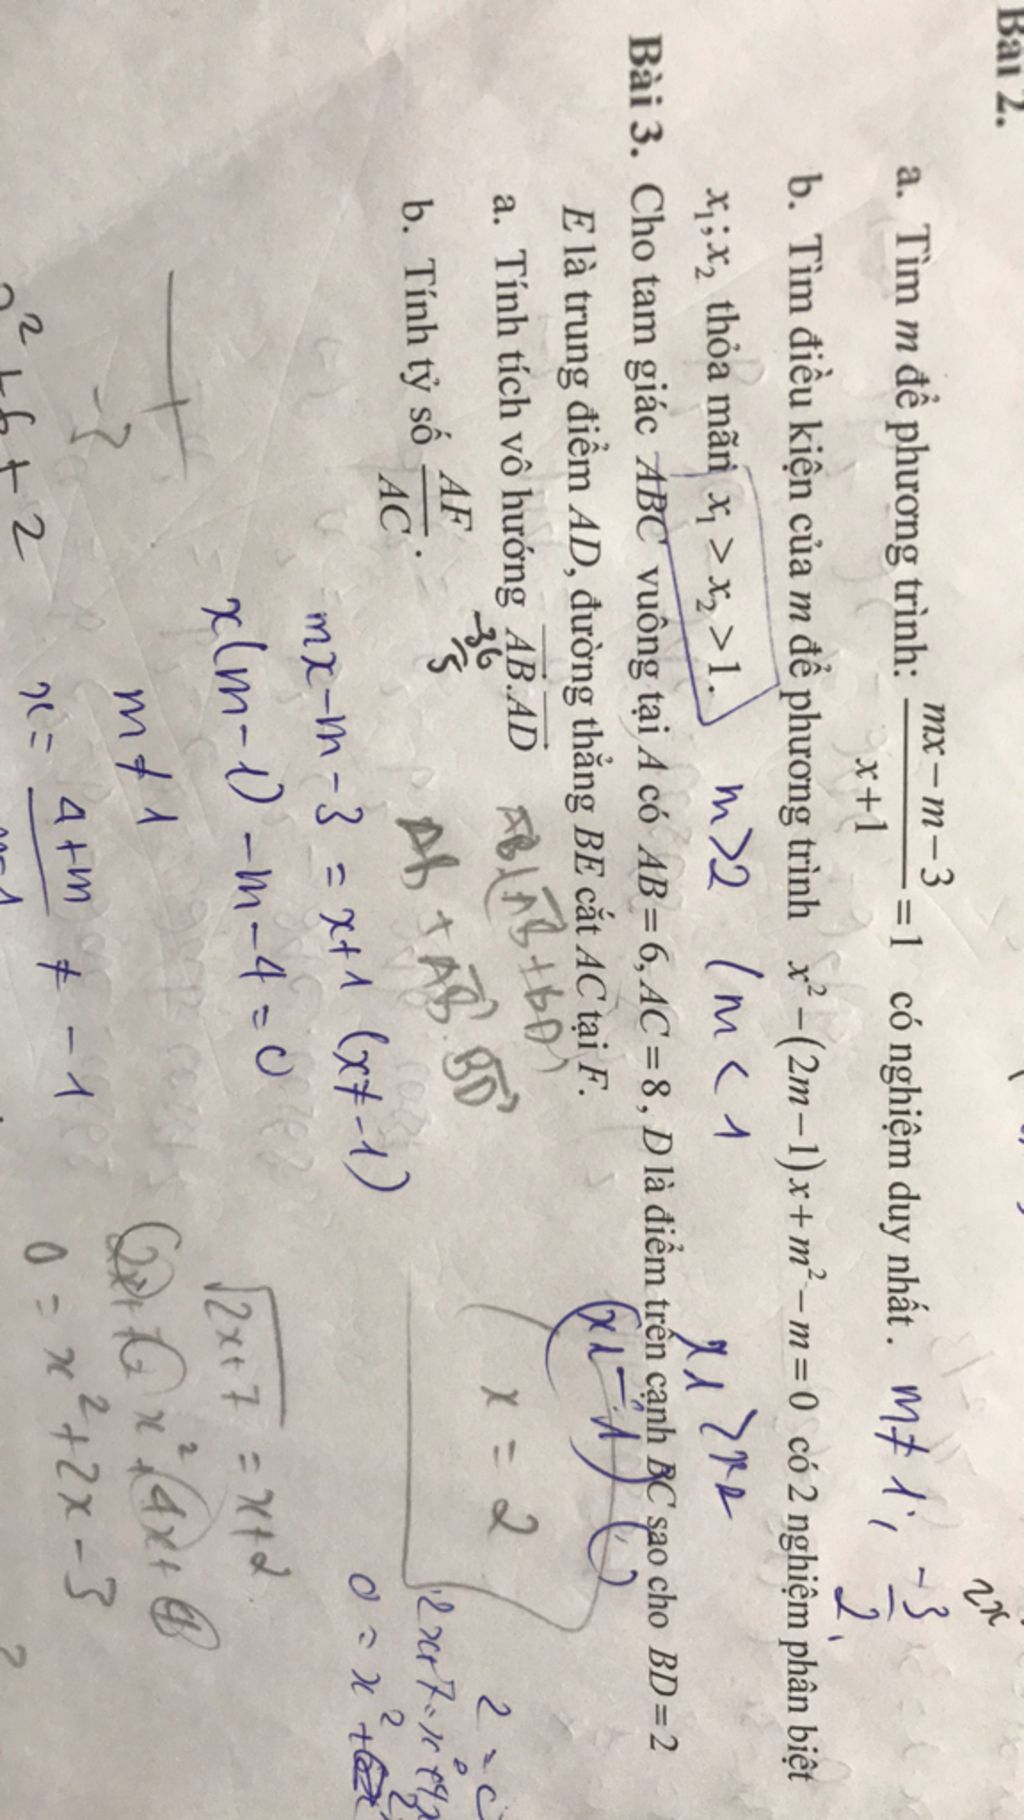 Bài 2.
2x
a. Tìm m để phương trình: \frac{mx-m-3}{x+1} = 1 có nghiệm duy nhất. m ≠ 1, \frac{-3}{2}
b. Tìm điều kiện của m để phương trình x² - (2m-1)x + m² - m = 0 có 2 nghiệm phân biệt
x₁; x₂ thỏa mãn x₁ > x₂ > 1. m>2 / m < 1 x1 > x2
Bài 3. Cho tam giác ABC vuông tại A có AB = 6, AC = 8, D là điểm trên cạnh BC sao cho BD = 2
(x1 - 1)
E là trung điểm AD, đường thẳng BE cắt AC tại F.
a. Tính tích vô hướng \overline{AB}.\overline{AD} AB (AB + BD)
x = 2
b. Tính tỷ số \frac{AF}{AC}. AB + AB . BD
mx - m - 3 = x+1 (x ≠ -1)
0 = x² +
x(m-1) - m - 4 = 0
√2x+7 = x+2
m ≠ 1
x² + 4x + 4
x = \frac{4+m}{m-1} ≠ -1
0 = x² + 2x - 3